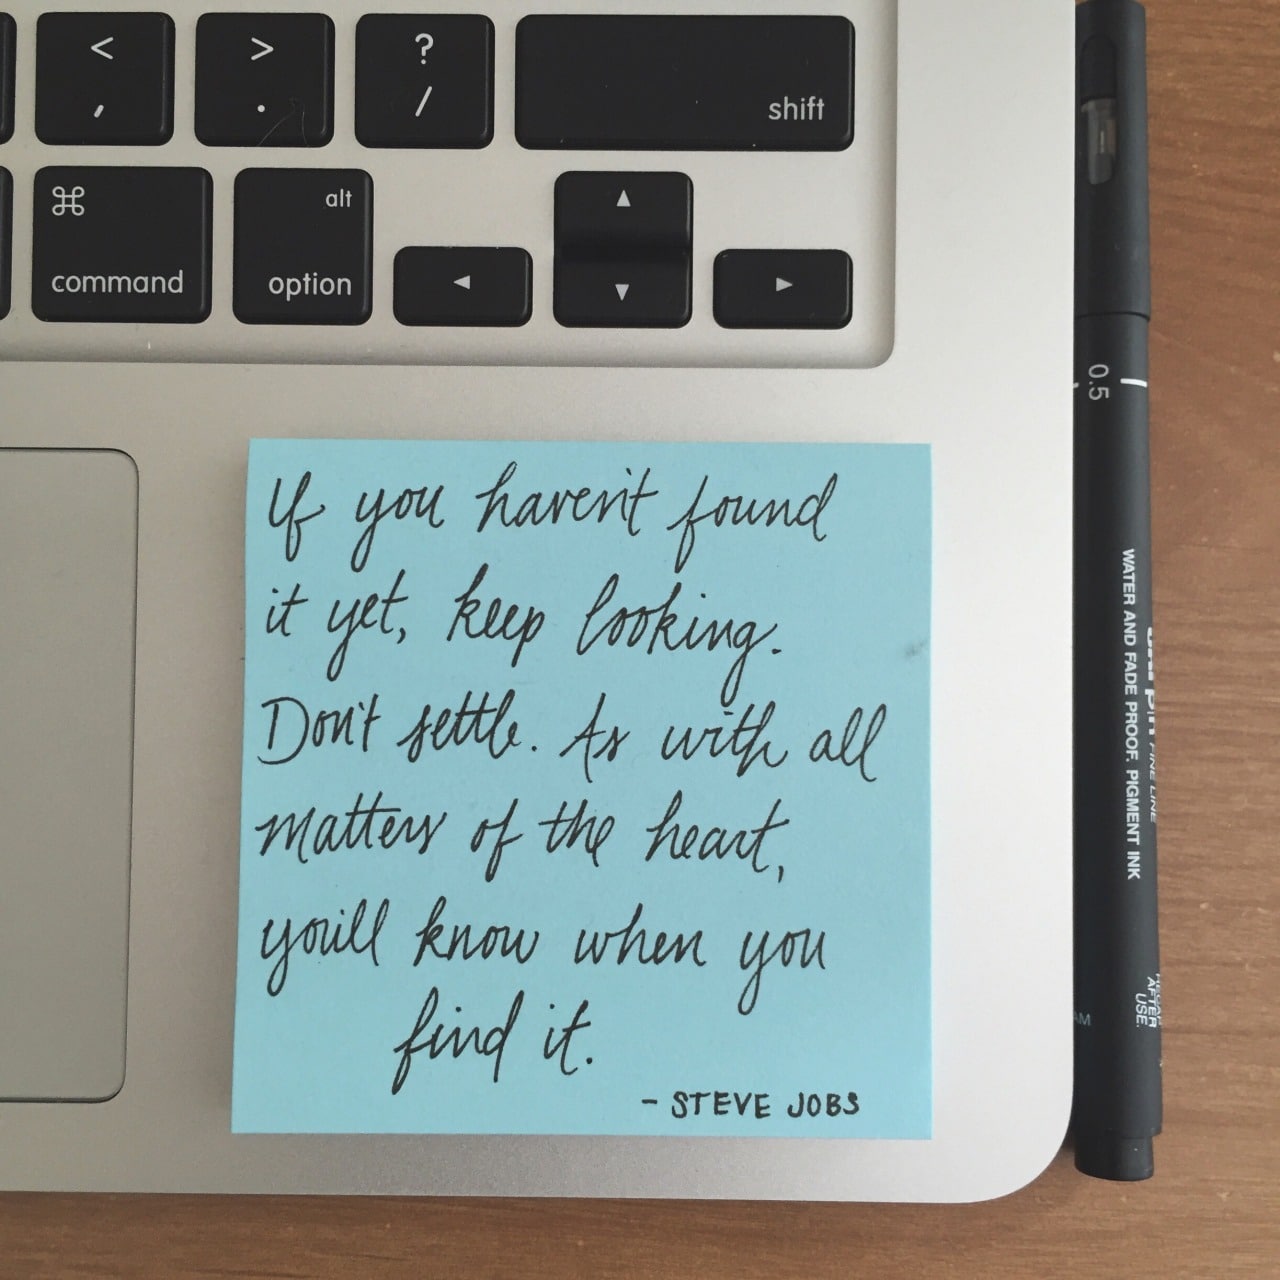 <
>
?
,
.
/
shift
⌘
alt
command
option
◀
▲
▼
▶
0.5
WATER AND FADE PROOF. PIGMENT INK
FINE LINE
AFTER
USE.
If you haven't found
it yet, keep looking.
Don't settle. As with all
matters of the heart,
you'll know when you
find it.
- STEVE JOBS